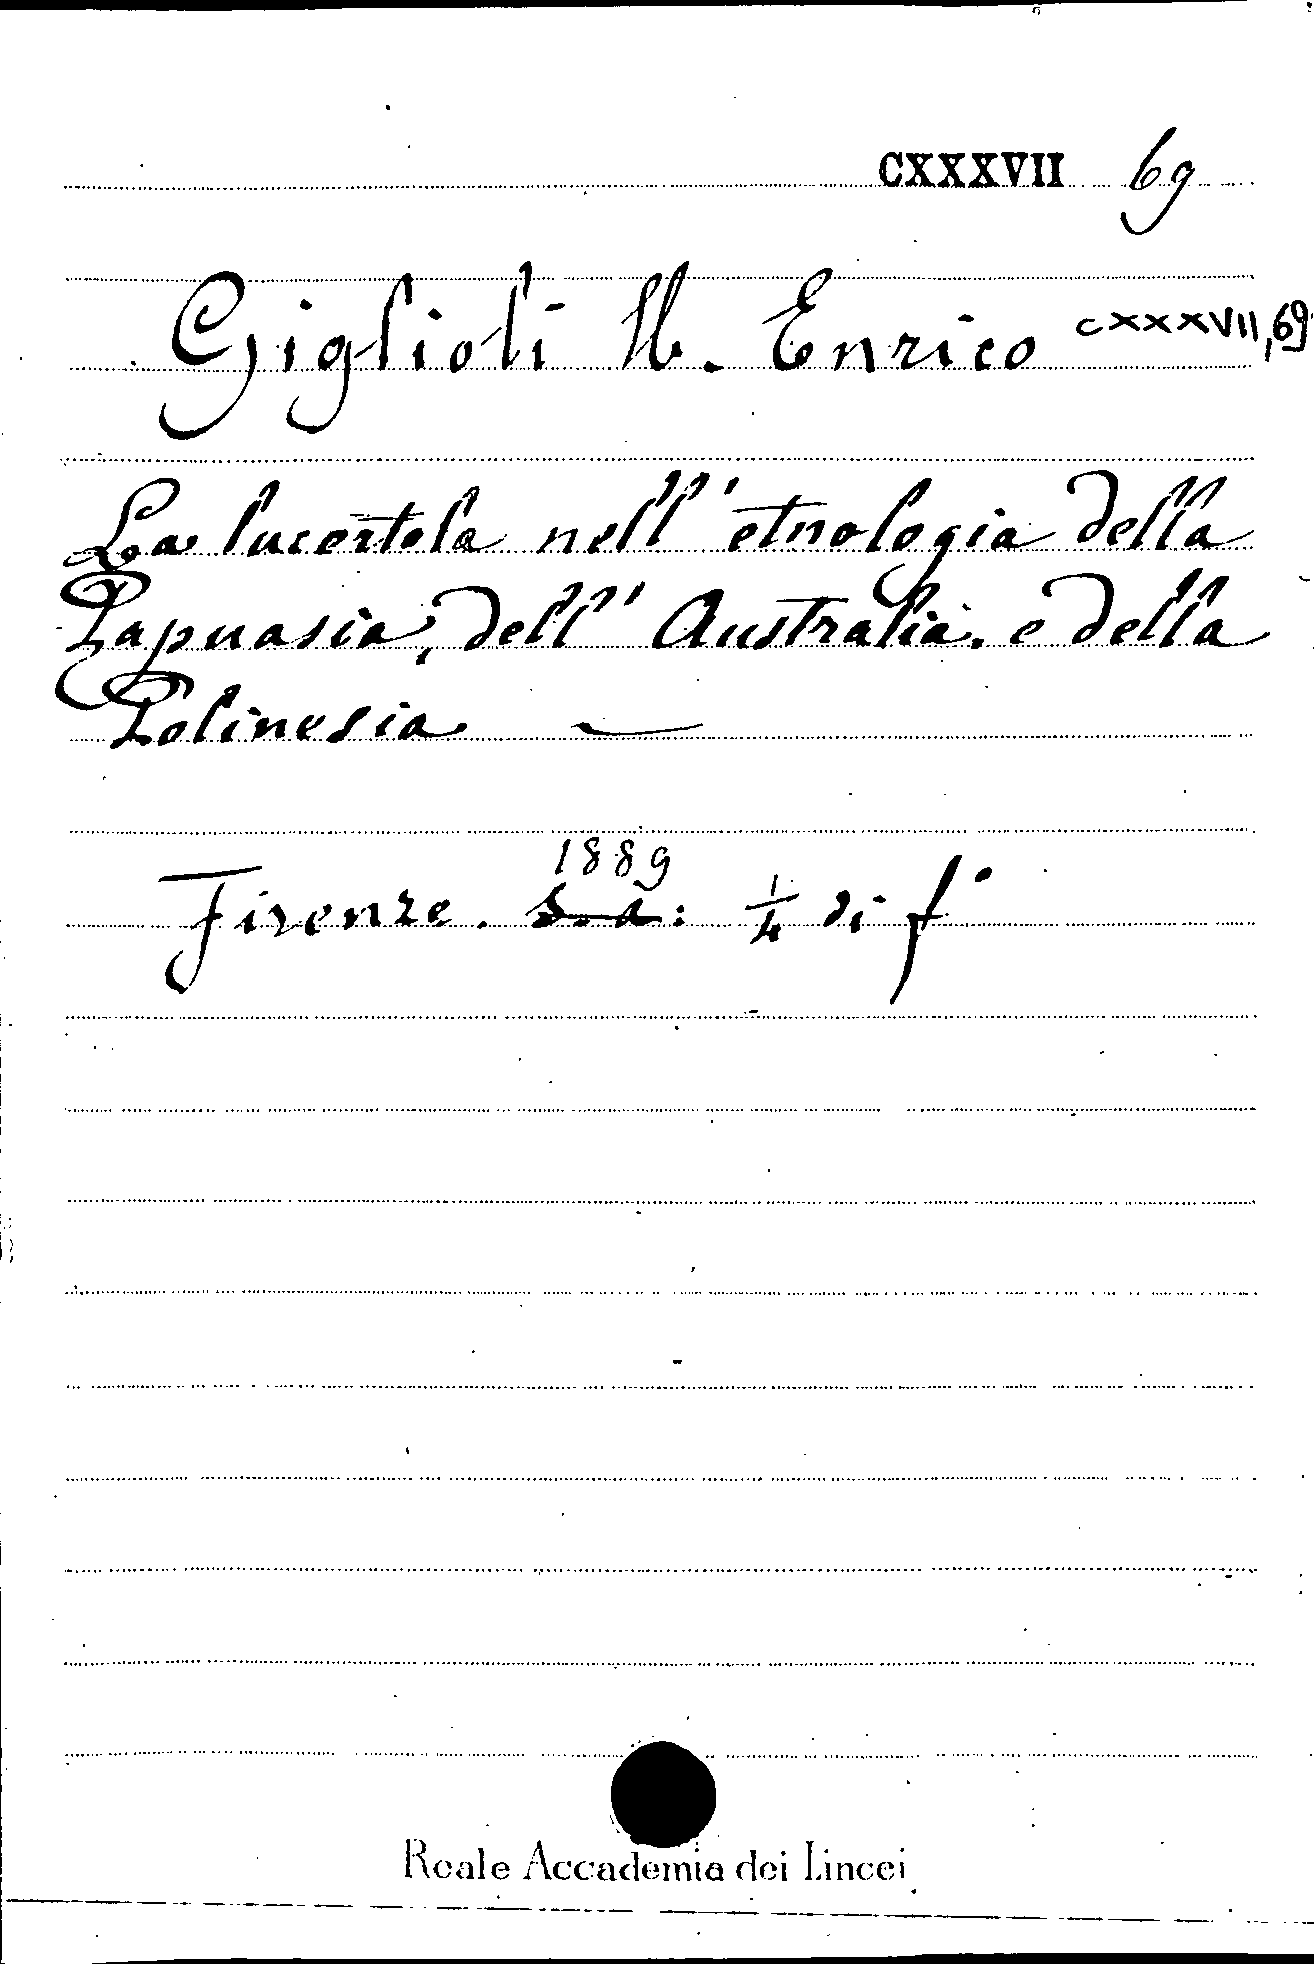 CXXXVII 69
Giglioli H. Enrico CXXXVII, 69
La lucertola nell' etnologia della
Papuasia, dell' Australia. e della
Polinesia —
1889
Firenze. S. a: 1/4 di f°
Reale Accademia dei Lincei